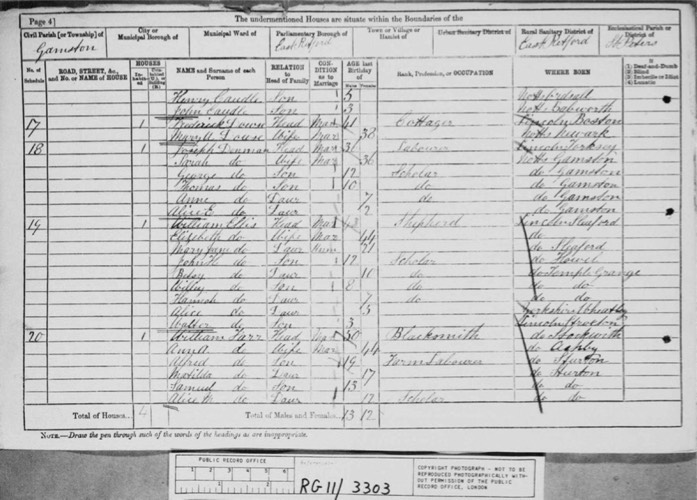 Page 4]
The undermentioned Houses are situate within the Boundaries of the
Civil Parish [or Township] of
Gamston
City or Municipal Borough of
Municipal Ward of
Parliamentary Borough of
East Retford
Town or Village or Hamlet of
Urban Sanitary District of
Rural Sanitary District of
East Retford
Ecclesiastical Parish or District of
St Peters
No. of Schedule
ROAD, STREET, &c., and No. or NAME of HOUSE
HOUSES
NAME and Surname of each Person
RELATION to Head of Family
CONDITION as to Marriage
AGE last Birthday of
Males Females
Rank, Profession, or OCCUPATION
WHERE BORN
If (1) Deaf-and-Dumb (2) Blind (3) Imbecile or Idiot (4) Lunatic
Henry Caudle Son 5 Notts
John Caudle Son 3 Notts
17 1 Frederick Head Mar 41 Cottager Lincoln Boston
Mary Wife Mar 38 Notts Newark
18 1 Joseph Denman Head Mar 36 Labourer Lincoln Torksey
Sarah do Wife Mar 36 Notts Gamston
George do Son 12 Scholar do Gamston
Thomas do Son 10 do do Gamston
Anne do Daur 7 do do Gamston
Alice E do Daur 2 do Gamston
19 1 William Ellis Head Mar 43 Shepherd Lincoln Sleaford
Elizabeth do Wife Mar 44 do
Mary Jane do Daur 21 do Sleaford
John H do Son 12 Scholar do Howel
Betsy do Daur 10 do do Temple Grange
Willey do Son 8 do do do
Hannah do Daur 7 do do do
Alice do Daur 3 Yorkshire
Walter do Son 3 Lincoln
20 1 William Head Mar 50 Blacksmith do
Ann A do Wife Mar 44 do Ashby
Alfred do Son 19 Farm Labourer do Sturton
Matilda do Daur 17 do Sturton
Samuel do Son 13 do do
Alice do Daur 12 Scholar do do
Total of Houses 4
Total of Males and Females 13 12
NOTE.—Draw the pen through such of the words of the headings as are inappropriate.
PUBLIC RECORD OFFICE
1 2 3 4 5 6
RG 11 / 3303
COPYRIGHT PHOTOGRAPH - NOT TO BE
REPRODUCED PHOTOGRAPHICALLY WITH-
OUT PERMISSION OF THE PUBLIC
RECORD OFFICE, LONDON